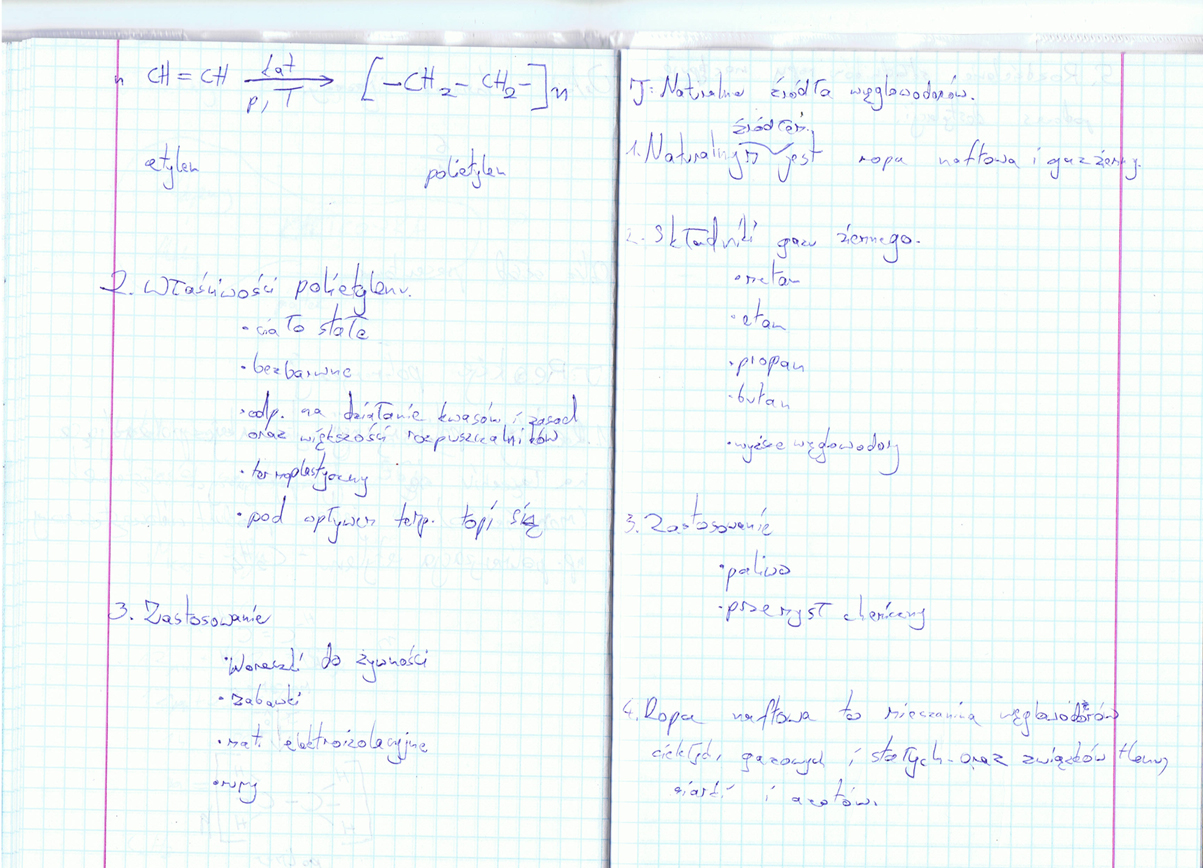 n CH = CH kat p, T → [-CH2- CH2-]n
etylen polietylen
2. Właściwości polietylenu.
• ciało stałe
• bezbarwne
• odp. na działanie kwasów i zasad
oraz większości rozpuszczalników
• termoplastyczny
• pod wpływem temp. topi się
3. Zastosowanie
• Woreczki do żywności
• zabawki
• mat. elektroizolacyjne
• rury
T: Naturalne źródła węglowodorów.
źródłem
1. Naturalnym jest ropa naftowa i gaz ziemny.
2. Składniki gazu ziemnego.
• metan
• etan
• propan
• butan
• wyższe węglowodory
3. Zastosowanie
• paliwo
• przemysł chemiczny
4. Ropa naftowa to mieszanina węglowodorów
ciekłych, gazowych i stałych oraz związków tlenu,
siarki i azotów.